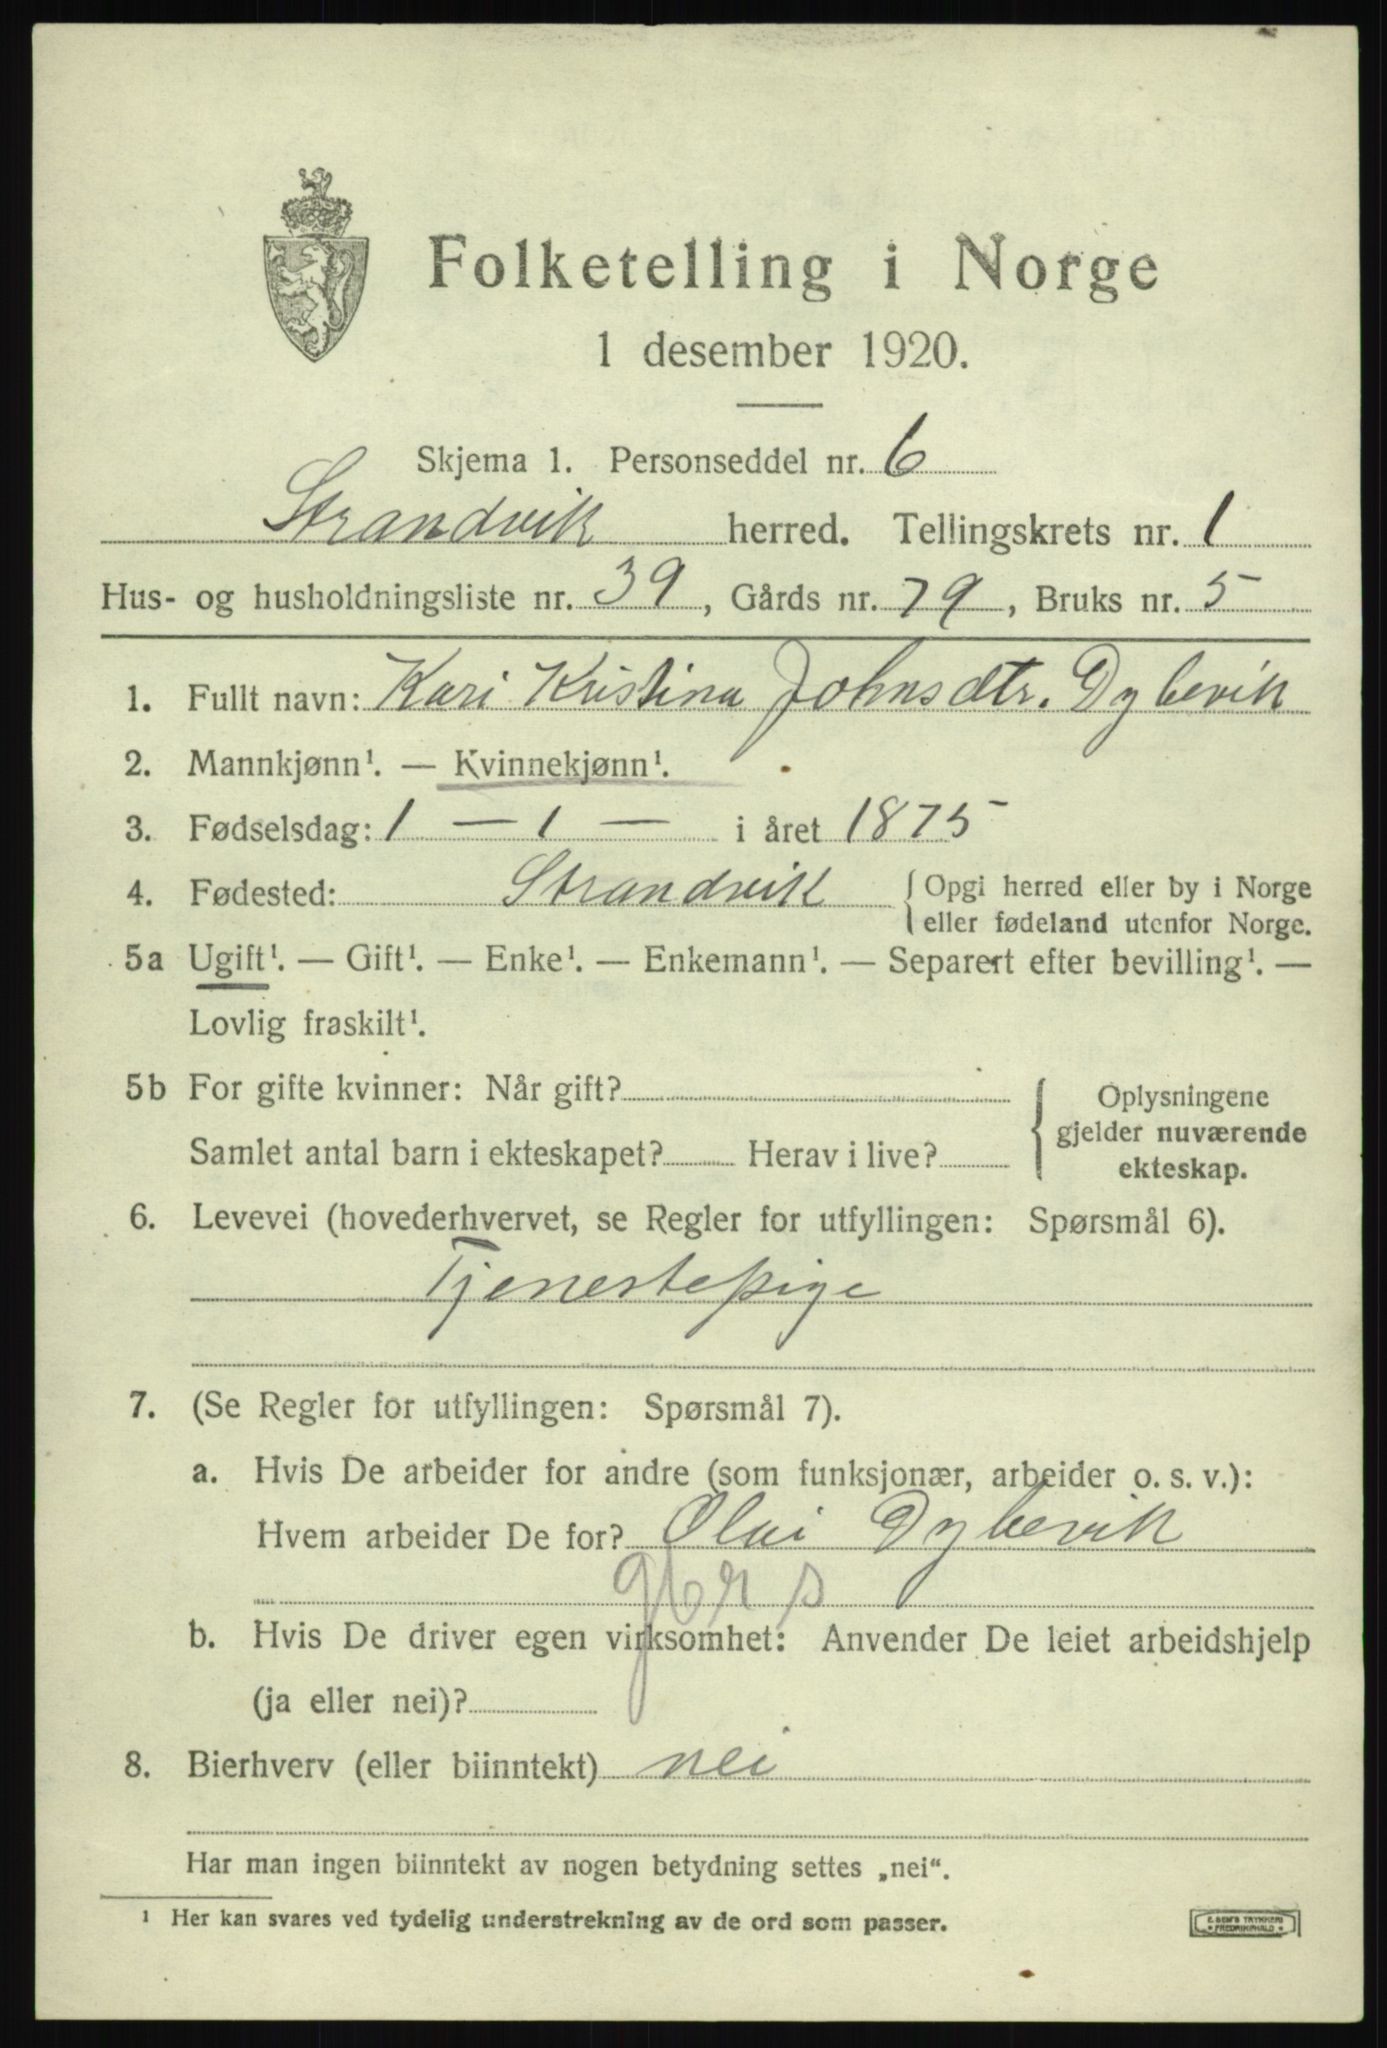 Folketelling i Norge
1 desember 1920.
Skjema 1. Personseddel nr. 6
Strandvik herred. Tellingskrets nr. 1
Hus- og husholdningsliste nr. 39, Gårds nr. 79, Bruks nr. 5
1. Fullt navn: Kari Kristina Johnsdtr. Dybevik
2. Mannkjønn¹. — Kvinnekjønn¹.
3. Fødselsdag: 1 — 1 — i året 1875
4. Fødested: Strandvik { Opgi herred eller by i Norge
eller fødeland utenfor Norge.
5a Ugift¹. — Gift¹. — Enke¹. — Enkemann¹. — Separert efter bevilling¹. —
Lovlig fraskilt¹.
5b For gifte kvinner: Når gift?
Samlet antal barn i ekteskapet? Herav i live?
{ Oplysningene
gjelder nuværende
ekteskap.
6. Levevei (hovederhvervet, se Regler for utfyllingen: Spørsmål 6).
Tjenestepige
7. (Se Regler for utfyllingen: Spørsmål 7).
a. Hvis De arbeider for andre (som funksjonær, arbeider o. s. v.):
Hvem arbeider De for? Olai Dybevik
b. Hvis De driver egen virksomhet: Anvender De leiet arbeidshjelp
(ja eller nei)?
8. Bierhverv (eller biinntekt) nei
Har man ingen biinntekt av nogen betydning settes „nei“.
¹ Her kan svares ved tydelig understrekning av de ord som passer.